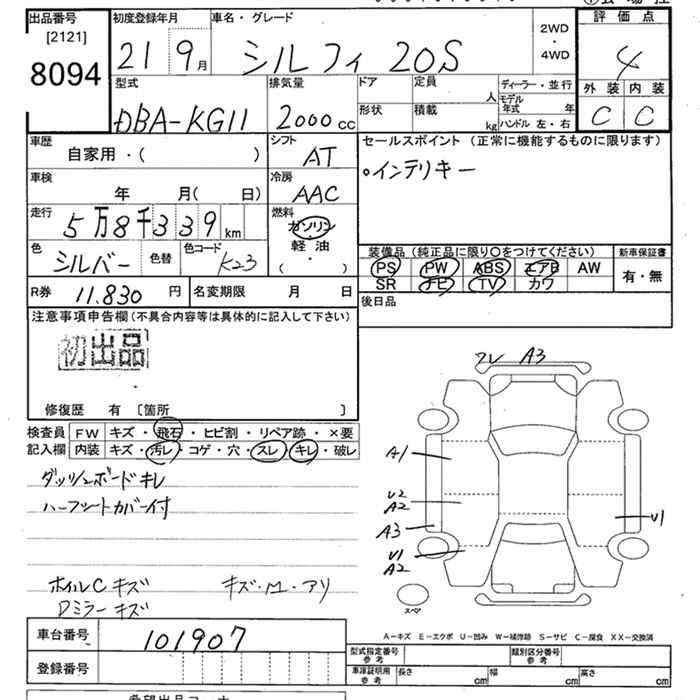 出品番号
[2121]
8094
初度登録年月
21 9月
車名・グレード
シルフィ 20S
2WD
・
4WD
評価点
4
外装 内装
C C
型式
DBA-KG11
排気量
2000 cc
ドア
形状
定員
人
積載
kg
ディーラー・並行
モデル
年式 年
ハンドル 左・右
車歴
自家用・( )
シフト
AT
セールスポイント (正常に機能するものに限ります)
○インテリキー
車検
年 月( 日)
冷房
AAC
走行
5万8千339km
燃料
ガソリン
軽油
( ・ )
色
シルバー
色替
色コード
K23
装備品 (純正品に限り○をつけてください)
PS PW ABS エアB AW
SR ナビ TV カワ
新車保証書
有・無
R券 11.830 円
名変期限 月 日
後日品
注意事項申告欄(不具合内容等は具体的に記入して下さい)
初出品
修復歴 有 [箇所 ]
検査員
記入欄
FW キズ・飛石・ヒビ割・リペア跡・×要
内装 キズ・汚レ・コゲ・穴・スレ・キレ・破レ
ダッシュボードキレ
ハーフシートカバー付
ホイルCキズ キズ・M・アリ
Dミラーキズ
フレ A3
A1
U2
A2
A3
U1
A2
U1
スペア
A-キズ E-エクボ U-凹み W-補修跡 S-サビ C-腐食 XX-交換済
車台番号 101907
登録番号
型式指定番号
参考
類別区分番号
参考
車庫証明用
参考
長さ cm
幅 cm
高さ cm